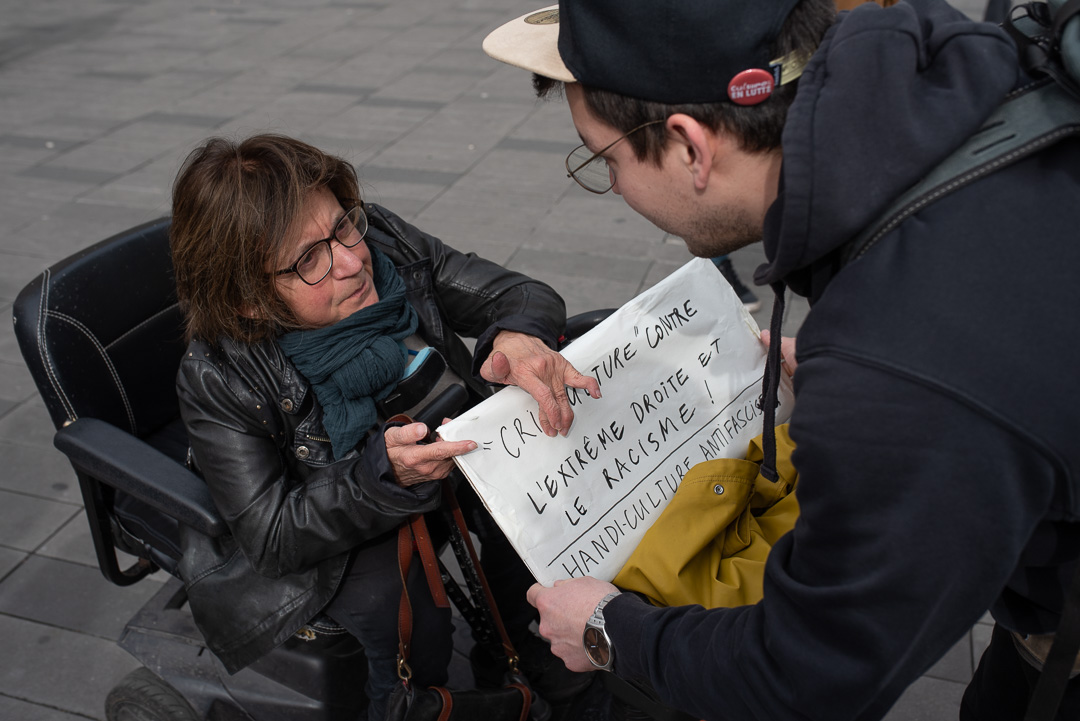 EN LUTTE
"CRI CULTURE" CONTRE
L'EXTRÊME DROITE ET
LE RACISME !
HANDI-CULTURE ANTIFASCISTE